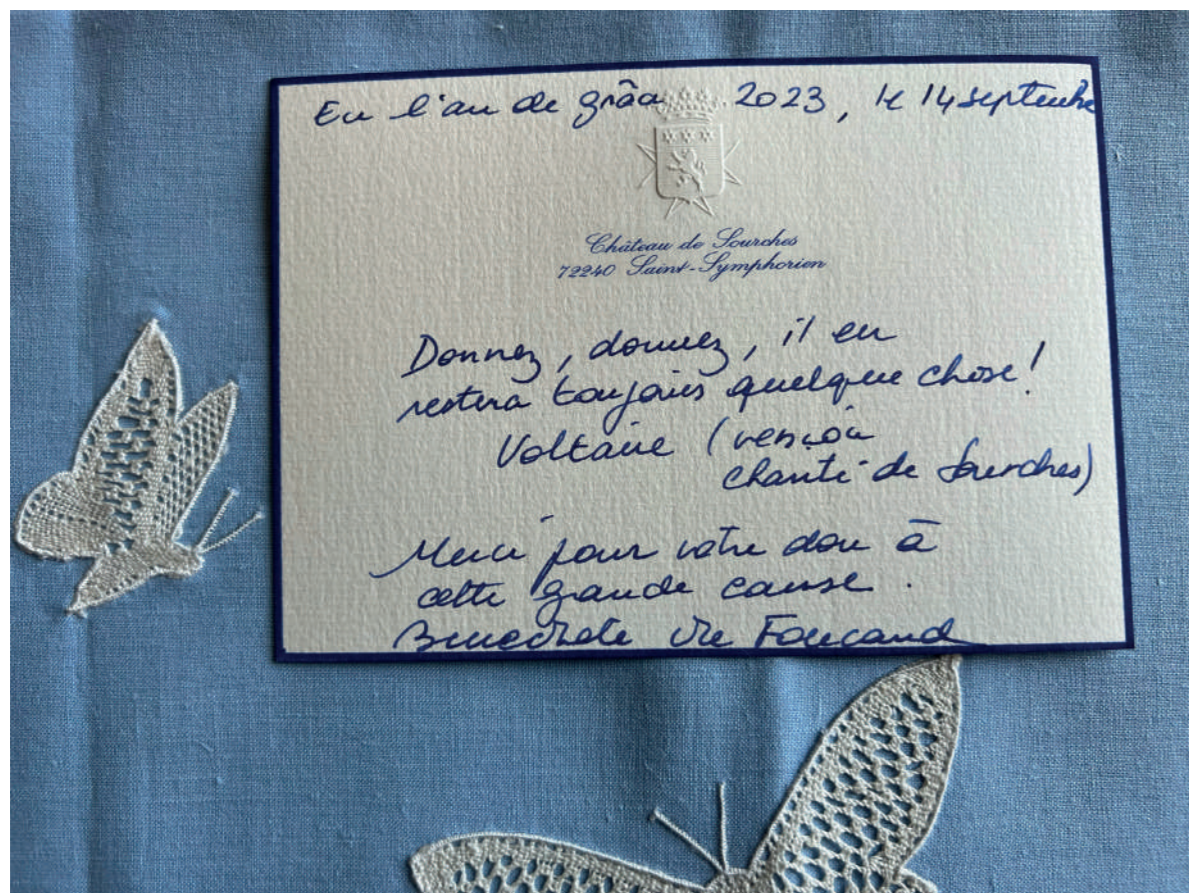 En l'an de grâce 2023, le 14 septembre
Château de Sourches
72240 Saint-Symphorien
Donnez, donnez, il en
restera toujours quelque chose!
Voltaire (version
charité de Sourches)
Merci pour votre don à
cette grande cause.
Bénédicte de Foucaud